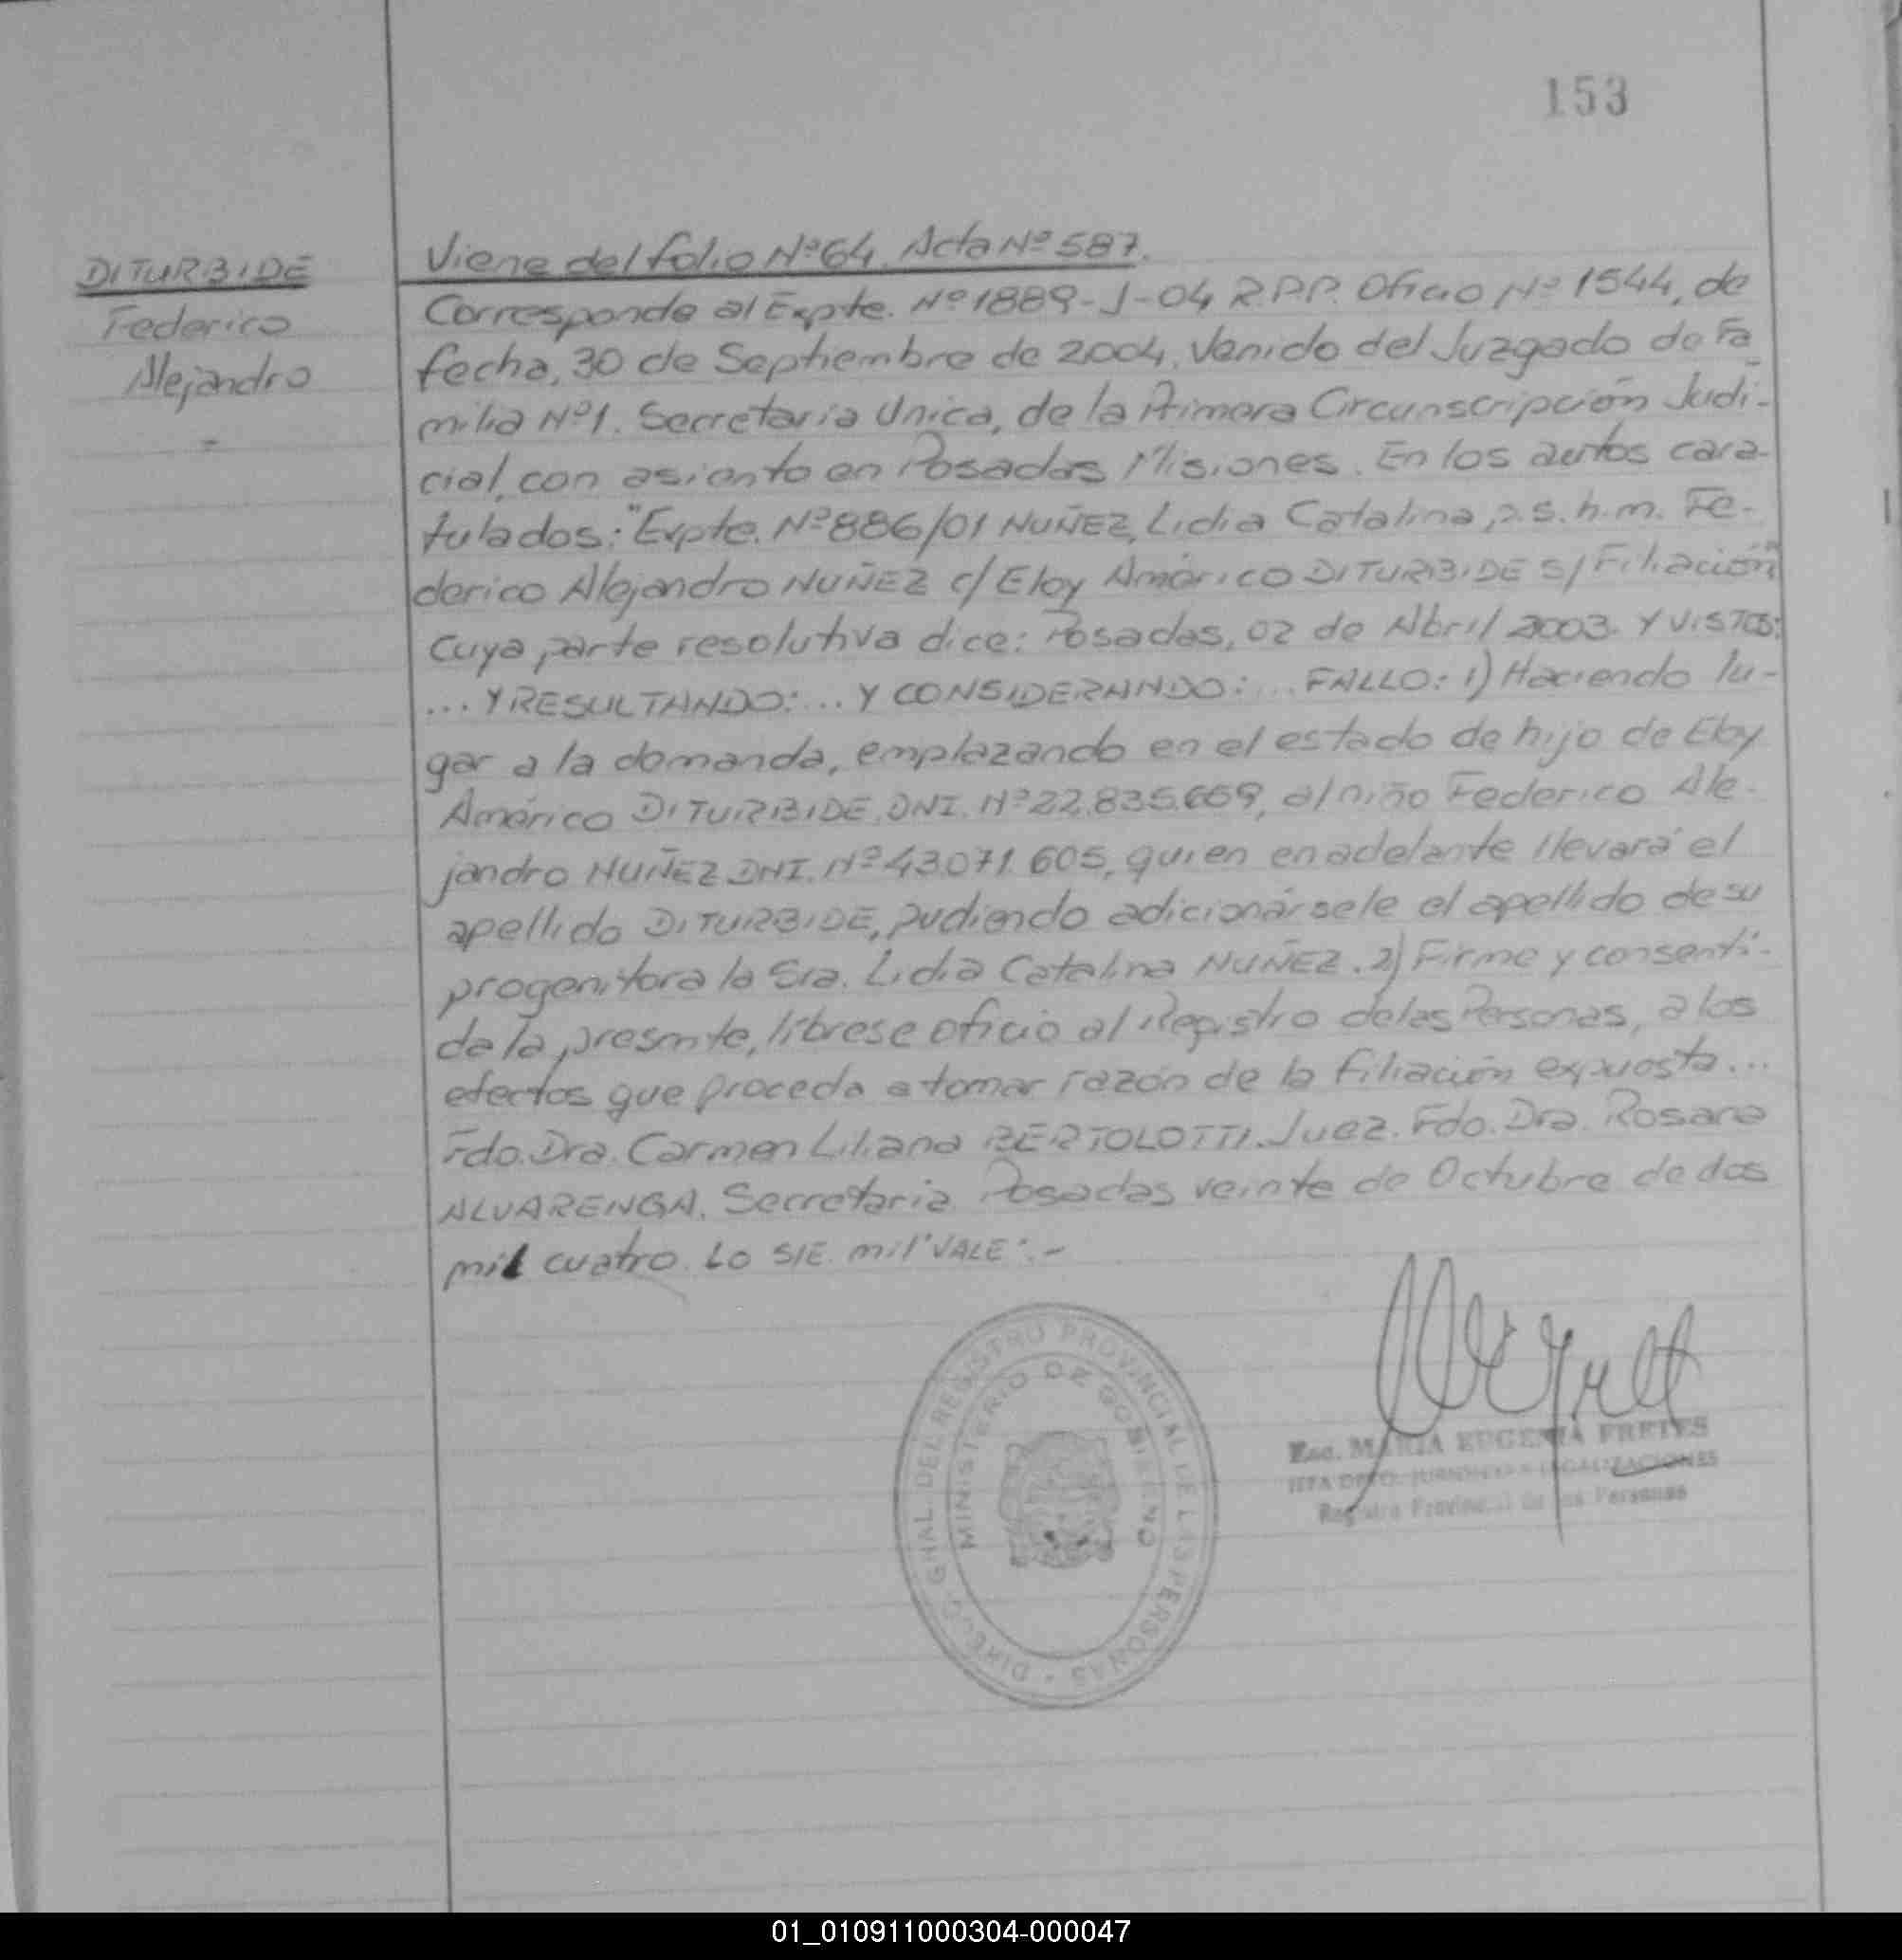 153
DITURBIDE
Federico
Alejandro
=
Viene del folio Nº 64. Acta Nº 587.
Corresponde al Expte. Nº 1889-J-04 R.P.P. Oficio Nº 1544, de
fecha, 30 de Septiembre de 2004. Venido del Juzgado de Fa-
milia Nº 1. Secretaria Unica, de la Primera Circunscripción Judi-
cial, con asiento en Posadas Misiones. En los autos cara-
tulados: "Expte. Nº 886/01 NUÑEZ, Lidia Catalina, p.s.h.m. Fe-
derico Alejandro NUÑEZ c/ Eloy Américo DITURBIDE S/ Filiación"
Cuya parte resolutiva dice: Posadas, 02 de Abril 2003. Y VISTOS:
... Y RESULTANDO: ... Y CONSIDERANDO: ... FALLO: 1) Haciendo lu-
gar a la demanda, emplazando en el estado de hijo de Eloy
Américo DITURBIDE, DNI. Nº 22.835.659, al niño Federico Ale-
jandro NUÑEZ DNI. Nº 43.071.605, quien en adelante llevará el
apellido DITURBIDE, pudiendo adicionársele el apellido de su
progenitora la Sra. Lidia Catalina NUÑEZ. 2) Firme y consenti-
da la presente, líbrese oficio al Registro de las Personas, a los
efectos que proceda a tomar razón de la filiación expuesta...
Fdo. Dra. Carmen Liliana BERTOLOTTI. Juez. Fdo. Dra. Rosara
ALVARENGA. Secretaria. Posadas veinte de Octubre de dos
mil cuatro. Lo S/E. mil "VALE".-
DIREC. GRAL. DEL REGISTRO PROVINCIAL DE LAS PERSONAS
MINISTERIO DE GOBIERNO
Esc. MARIA EUGENIA FRETES
JEFA DPTO. LEGALIZACIONES
Registro Provincial de las Personas
01_010911000304-000047